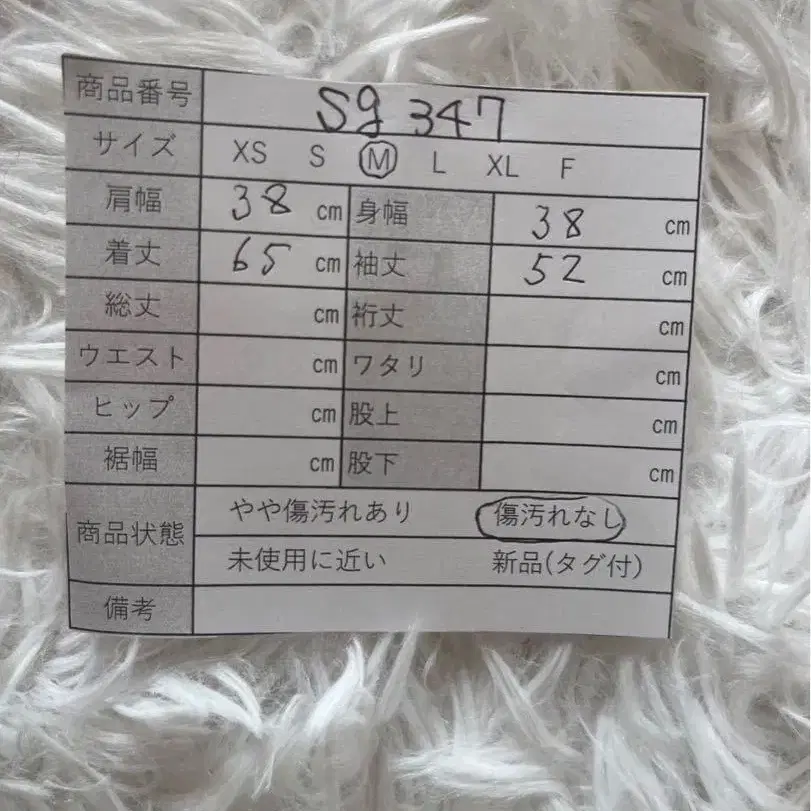 商品番号 Sg 347
サイズ XS S M L XL F
肩幅 38 cm 身幅 38 cm
着丈 65 cm 袖丈 52 cm
総丈 cm 裄丈 cm
ウエスト cm ワタリ cm
ヒップ cm 股上 cm
裾幅 cm 股下 cm
商品状態 やや傷汚れあり 傷汚れなし
未使用に近い 新品(タグ付)
備考